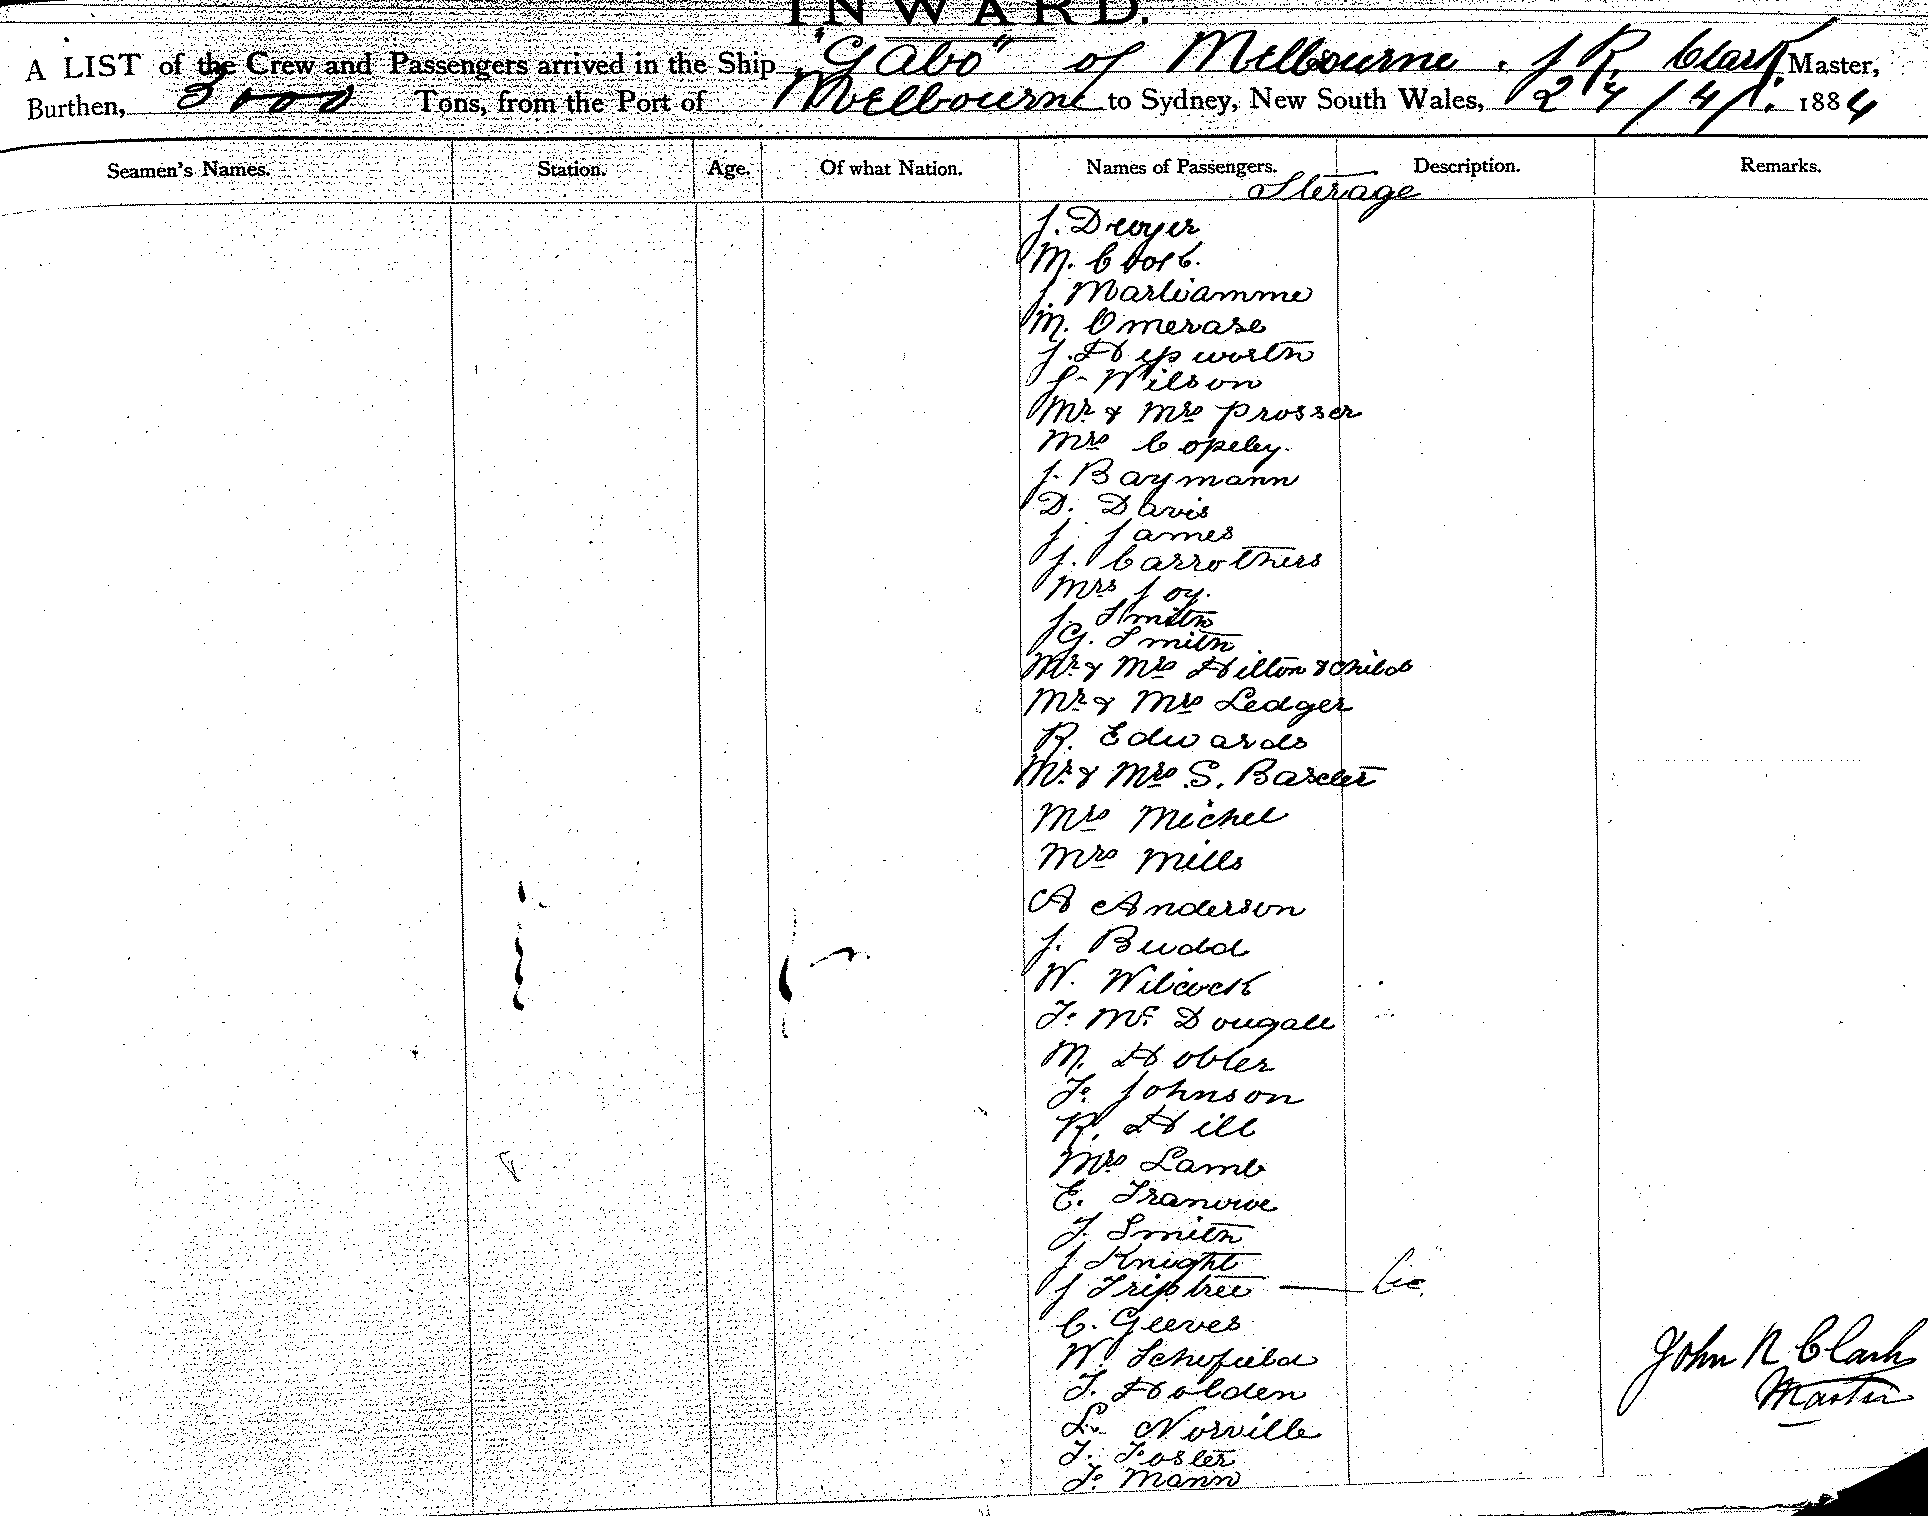 INWARD.
A LIST of the Crew and Passengers arrived in the Ship "Gabo" of Melbourne. J R Clark Master,
Burthen, 3000 Tons, from the Port of Melbourne to Sydney, New South Wales, 24/4/ 1884
Seamen's Names. Station. Age. Of what Nation. Names of Passengers. Description. Remarks.
Sterage
J. Dwyer
M. Cook
J. Marliamme
M. Omerase
J. Hepworth
J. Wilson
Mr & Mrs Prosser
Mrs Copeley.
J. Baymann
D. Davis
J. James
J. Carrothers
Mrs Joy.
J. Smith
G. Smith
Mr & Mrs Hilton & Child
Mr & Mrs Ledger
R. Edwards
Mr & Mrs S. Baxter
Mrs Michel
Mrs Mills
A Anderson
J. Budd
W. Wilcock
F. Mc Dougall
M. Hobler
F. Johnson
R. Hill
Mrs Lamb
E.
F. Smith
J Knight
J Triptree
C. Geeves
W. Schofield
T. Holden
L. Norville
F. Foster
F. Mann
John R Clark
Master